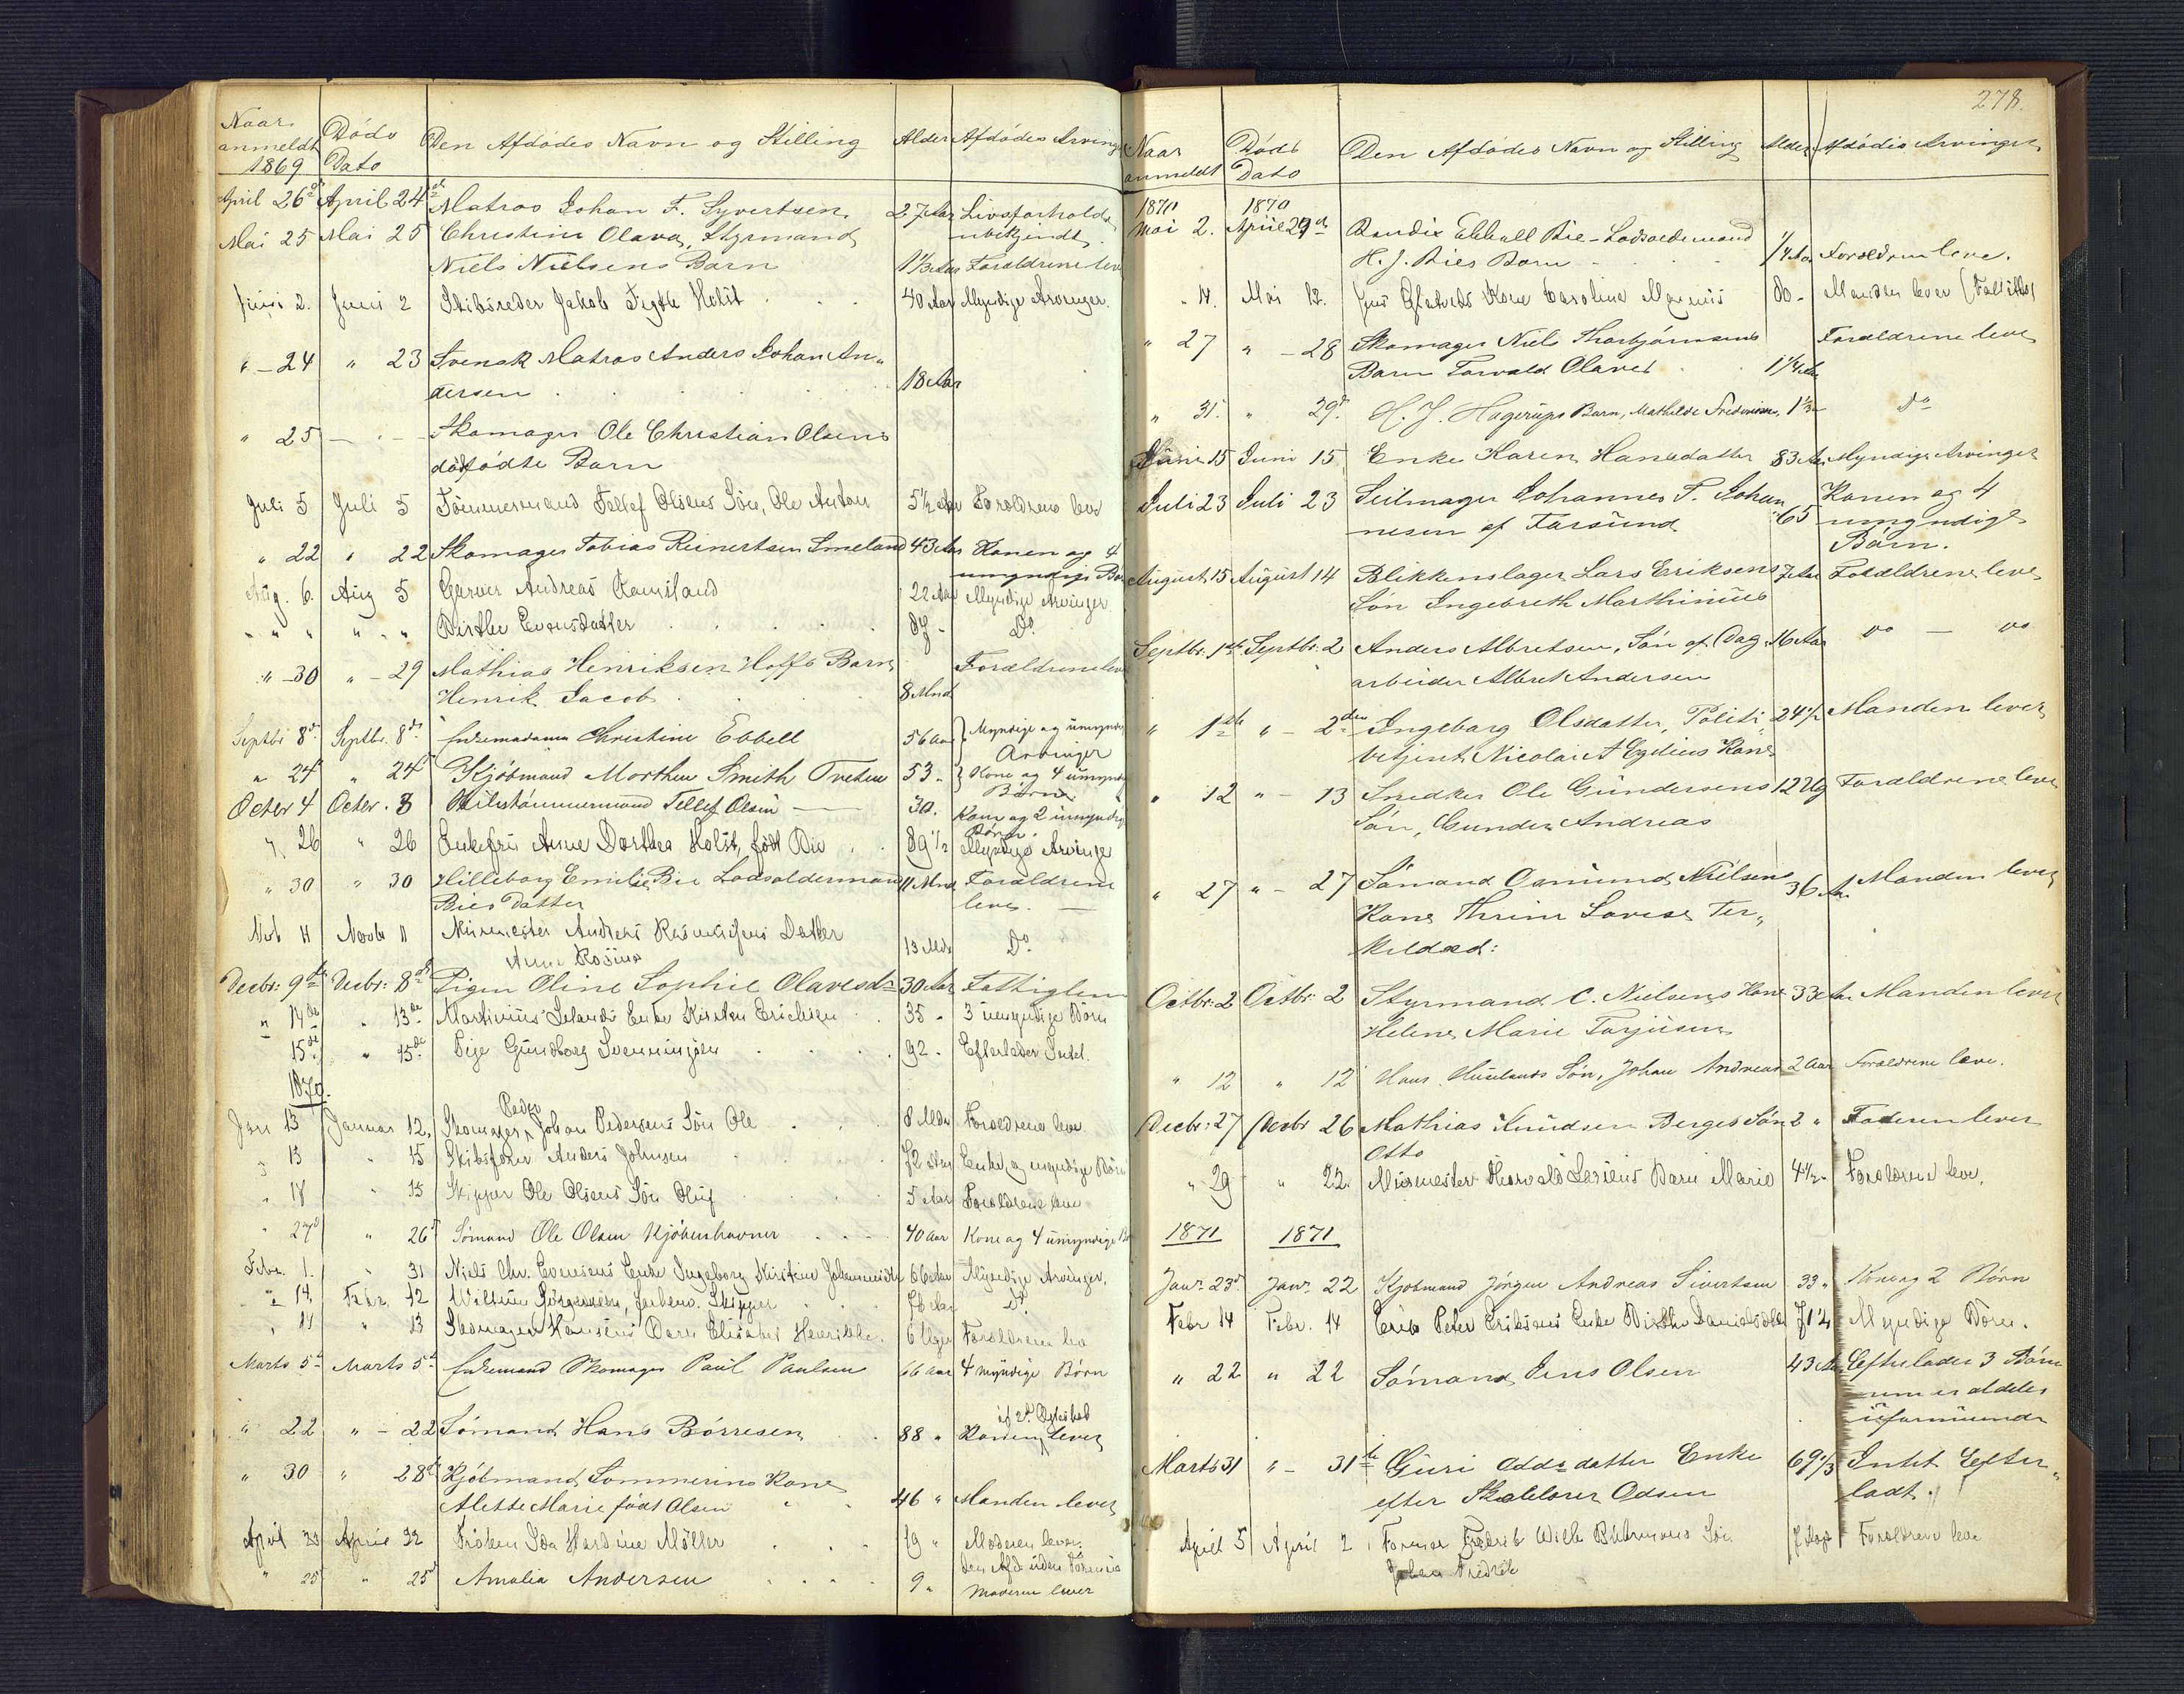 Naar anmeldt 1869 Döds Dato Den Afdödes Navn og Stilling Alder Afdödes Arvinger
April 26de April 24de Matros Johan F. Syvertsen. 27 Aar Livsforholde ubekjendt.
Mai 25 Mai 25 Christine Olava, Styrmand
Niels Nielsens Barn 1 1/3 Aar Forældrene leve
Juni 2. Juni 2 Skibsreder Jakob Holst 40 Aar Myndige Arvinger.
" - 24 " 23 Svensk Matros Anders Johan An-
dersen 18 Aar
" 25 - " - Skomager Ole Christian Olsens
dödfödte Barn
Juli 5 Juli 5 Tömmermand Tellef Olsens Sön, Ole Anton 5 1/2 Aar Forældrene leve
" 22 " 22 Skomager Tobias Reinertsen Smeland 43 Aar Konen og 4
umyndige Börn
Aug. 6. Aug 5 Garver Andreas 22 Aar Myndige Arvinger
" " " " " Birthe Evensdatter Do.
" - 30 " - 29 Mathias Henriksen Hoffs Barn Forældrene leve
Henrik Jacob 8 Mnd
Septbr 8de Septbr. 8de Enkemadame Christine Ebbell 56 Aar Myndige og umyndige
Arvinger
" 24 " 24 Kjöbmand Morthen Smith Treten 53 - Kone og 4 umyndige
Börn.
Octbr 4 Octbr. 8 Skibstömmermand Tellef Olsen 30. Kone og 2 umyndige
Börn.
" 26 " 26 Enkefru Anne Dorthea Holst, födt Bie 89 1/2 Myndige Arvinger
" 30 " 30 Hilleborg Emilie Bie Lodsoldermand 11 Mnd Forældrene
Bies Datter leve.
Nov 11 Novbr 11 Murmester Andreas Rasmussens Datter 13 Mdr Do.
Anne Rosine
Decbr: 9de Decbr: 8de Pigen Oline Sophie Olavesdr 30 Aar Fattiglem
" 14de " 13de Martinius Enke Kirsten Erichsen 35 - 3 umyndige Börn
15de " 15de Pige Gundborg Svenningsen 92 - Efterlader Intet.
1870.
Jan 13 Januar 12. Skomager Peder Johan Pedersens Sön Ole 8 Mdr Forældrene leve
" 13 " 15 Skibsförer Anders Johnsen 72 Aar Enke og myndige Börn
" 18 " 15 Skipper Ole Olsens Sön Oluf 5 Aar Forældrene leve
" 27de " 26de Sömand Ole Olsen Kjöbenhavner 40 Aar Kone og 4 umyndige Börn
Febr. 1. " 31 Niels Chr. Evensens Enke Ingeborg Kirstine Johannesdtr 66 Aar Myndige Arvinger.
" 14, Febr. 12 Willum Jörgensen, forhenv. Skipper 76 Aar Do.
" 14 " 13 Skomager Hansens Barn Elisabet Henrikke 6 Uger Forældrene leve
Marts 5te Marts 5te Enkemand Skomager Paul Paulsen 66 Aar 4 myndige Börn
" 22 " - 22 Sömand Hans Börresen 88 " Konen af 2det Ægteskab lever
" 30 " 28de Kjöbmand Sommerins Kone
Alette Marie födt Olsen 46 " Manden lever
April 23 April 22 Fröken Ida Hardine Möller 19 " Moderen lever.
" 25 " 25de Amalia Andersen 9 " Moderen lever
278.
Naar anmeldt Döds Dato Den Afdödes Navn og Stilling Alder Afdödes Arvinger
1870 1870
Mai 2. April 29de Bendix Ebbell Bie - Lodsoldermand
H. J. Bies Barn 1/4 Aar Forældrene leve.
" 14. Mai 12. Jens Kone Caroline 80 - Manden lever
" 27 " - 28 Skomager Niels Thorbjörnsens Forældrene leve
Barn Torvald Olaves 1 1/4 Aar
" 31. " 29de H. J. Hagerups Barn, Mathilde Fredrikke, Do
Juni 15 Juni 15 Enke Karen Hansdatter 83 Aar Myndige Arvinger
Juli 23 Juli 23 Seilmager Johannes T. Johan- 65 Konen og 4
nesen af Farsund umyndige
Börn.
August 15 August 14 Blikkenslager Lars Eriksens 7 Aar Forældrene leve
Sön Ingebreth Marthinius
Septbr. 1ste Septbr. 2 Anders Albretsen, Sön af Dag- 16 Aar Do - Do
arbeider Albret Andersen
" 1ste " - 2den Ingeborg Olsdatter, Politi- 24 1/2 Manden lever
betjent Nicolai A Egelius Kone
" 12 " - 13 Snedker Ole Gundersens 12 Ug Forældrene leve
Sön, Gunder Andreas
" 27 " - 27 Sömand Osmund Nielsens 36 Aar Manden lever
Kone Thrine Lovise Ter-
keldsd:
Octbr. 2 Octbr. 2 Styrmand C. Nielsens Kone 33 Aar Manden lever
Helene Marie Torjusen
" 12 " 12 Hans Huselands Sön, Johan Andreas 2 Aar Forældrene leve.
Decbr. 27 Decbr 26 Mathias Knudsen Berges Sön 2 " Faderen lever
Otto
" 29 " 22 Murmester Barn Marie 4 1/2 - Forældrene leve.
1871 1871
Janr. 23de Janr. 22 Kjöbmand Jörgen Andreas Sivertsen 33 " Kone og 2 Börn
Febr 14 Febr. 14 Erik Peter Eriksens Enke Birthe Danielsdatter 71 1/2 Myndige Börn.
" 22 " 22 Sömand Jens Olsen 43 Aar Efterlader 3 Börn
men er aldeles
uformuende
Marts 31 " - 31te Guri Oddsdatter Enke 69 1/3 Intet Efter-
efter Odsen ladt.
April 5 April 2 Fredrik Wilh. Sön 7 Dage Forældrene leve
Johan Fredrik